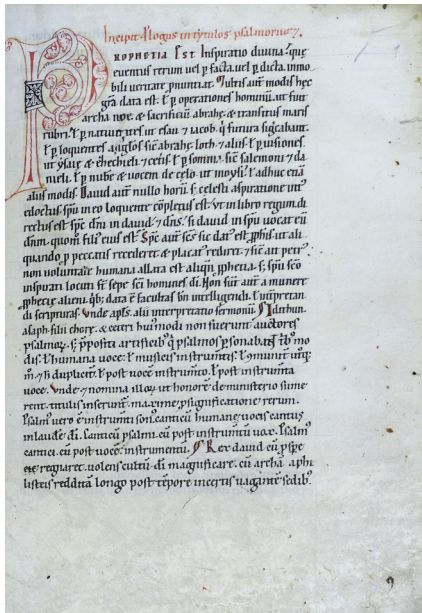 Incipit plogus in tytulos psalmoruꝫ.
PROPHETIA EST Inspiratio divina. que
eventus rerum vel ꝑ facta. vel ꝑ dicta. immo
bili veritate ꝓnuntiat. Multis autē modis hęc
gr̄a data est. ł ꝑ operationes hominū. ut fuit
archa noe. & sacrificiū abrahę. & transitus maris
rubri. ł ꝑ nativitates ut esau & iacob. q̄ futura signcabant.
ł ꝑ loquentes angłos sic̄ abrahę loth. & aliis. ł ꝑ visiones.
ut ysaię & ezechieli & cetis. ł ꝑ somniū sic̄ salemoni & da
nieli. ł ꝑ nubē & vocem de cęlo. ut moysi. ł adhuc ena
aliis modis. David autē nullo horū. s; cęlesti aspiratione int
edoctus. spū in eo loquente cōpletus est. ut in libro regum. di
rectus est spc̄ dn̄i in david. & dn̄s. si david in spu vocat eū
dnm̄. quom̄ filiꝰ eius est. Spc̄ autē sc̄s sic datꝰ est ꝓphis. ut ali
quando ꝓ peccatis recederet. & placatꝰ rediret. & sic ait petrꝰ.
non voluntate humana allata est aliqn̄ ꝓphetia. s; spū sc̄o
inspirati locuti st̄ sępe sc̄i homines di. Non sunt autē a munere
ꝓphetię alieni. qb; data ē facultas bn̄ intelligendi. ł interptan
di scripturas. Unde apls. alii interpretatio sermonū. Idithun.
asaph. filii chorę. & ceteri hui modi non fuerunt auctores
psalmoꝝ. s; ꝓpositi artificib; q̄ psalmos ꝑsonabant trib; mo
dis. ł humana voce. ł musicis instrumtis. ł comunit̄ utroq;
m. & h̄ dupliciť. ł post vocē instrumto. ł post instrumta
voce. Unde & nomina illoꝝ ut honorē de ministerio sume
rent. titulis inserunt. maxime ꝑ significatione rerum.
Psalmꝰ vero ē instrumti sonꝰ. canticū humanę vocis cantus
in laude di. Canticū psalmi. cū post instrumtū vox. Psalmꝰ
cantici. cū post vocē. instrumentū. Rex david cū ꝓspe
re regnaret. volens cultū di magnificare. cū archā a phi
listeis redditā longo post tēpore incertis vagante sedibꝰ.